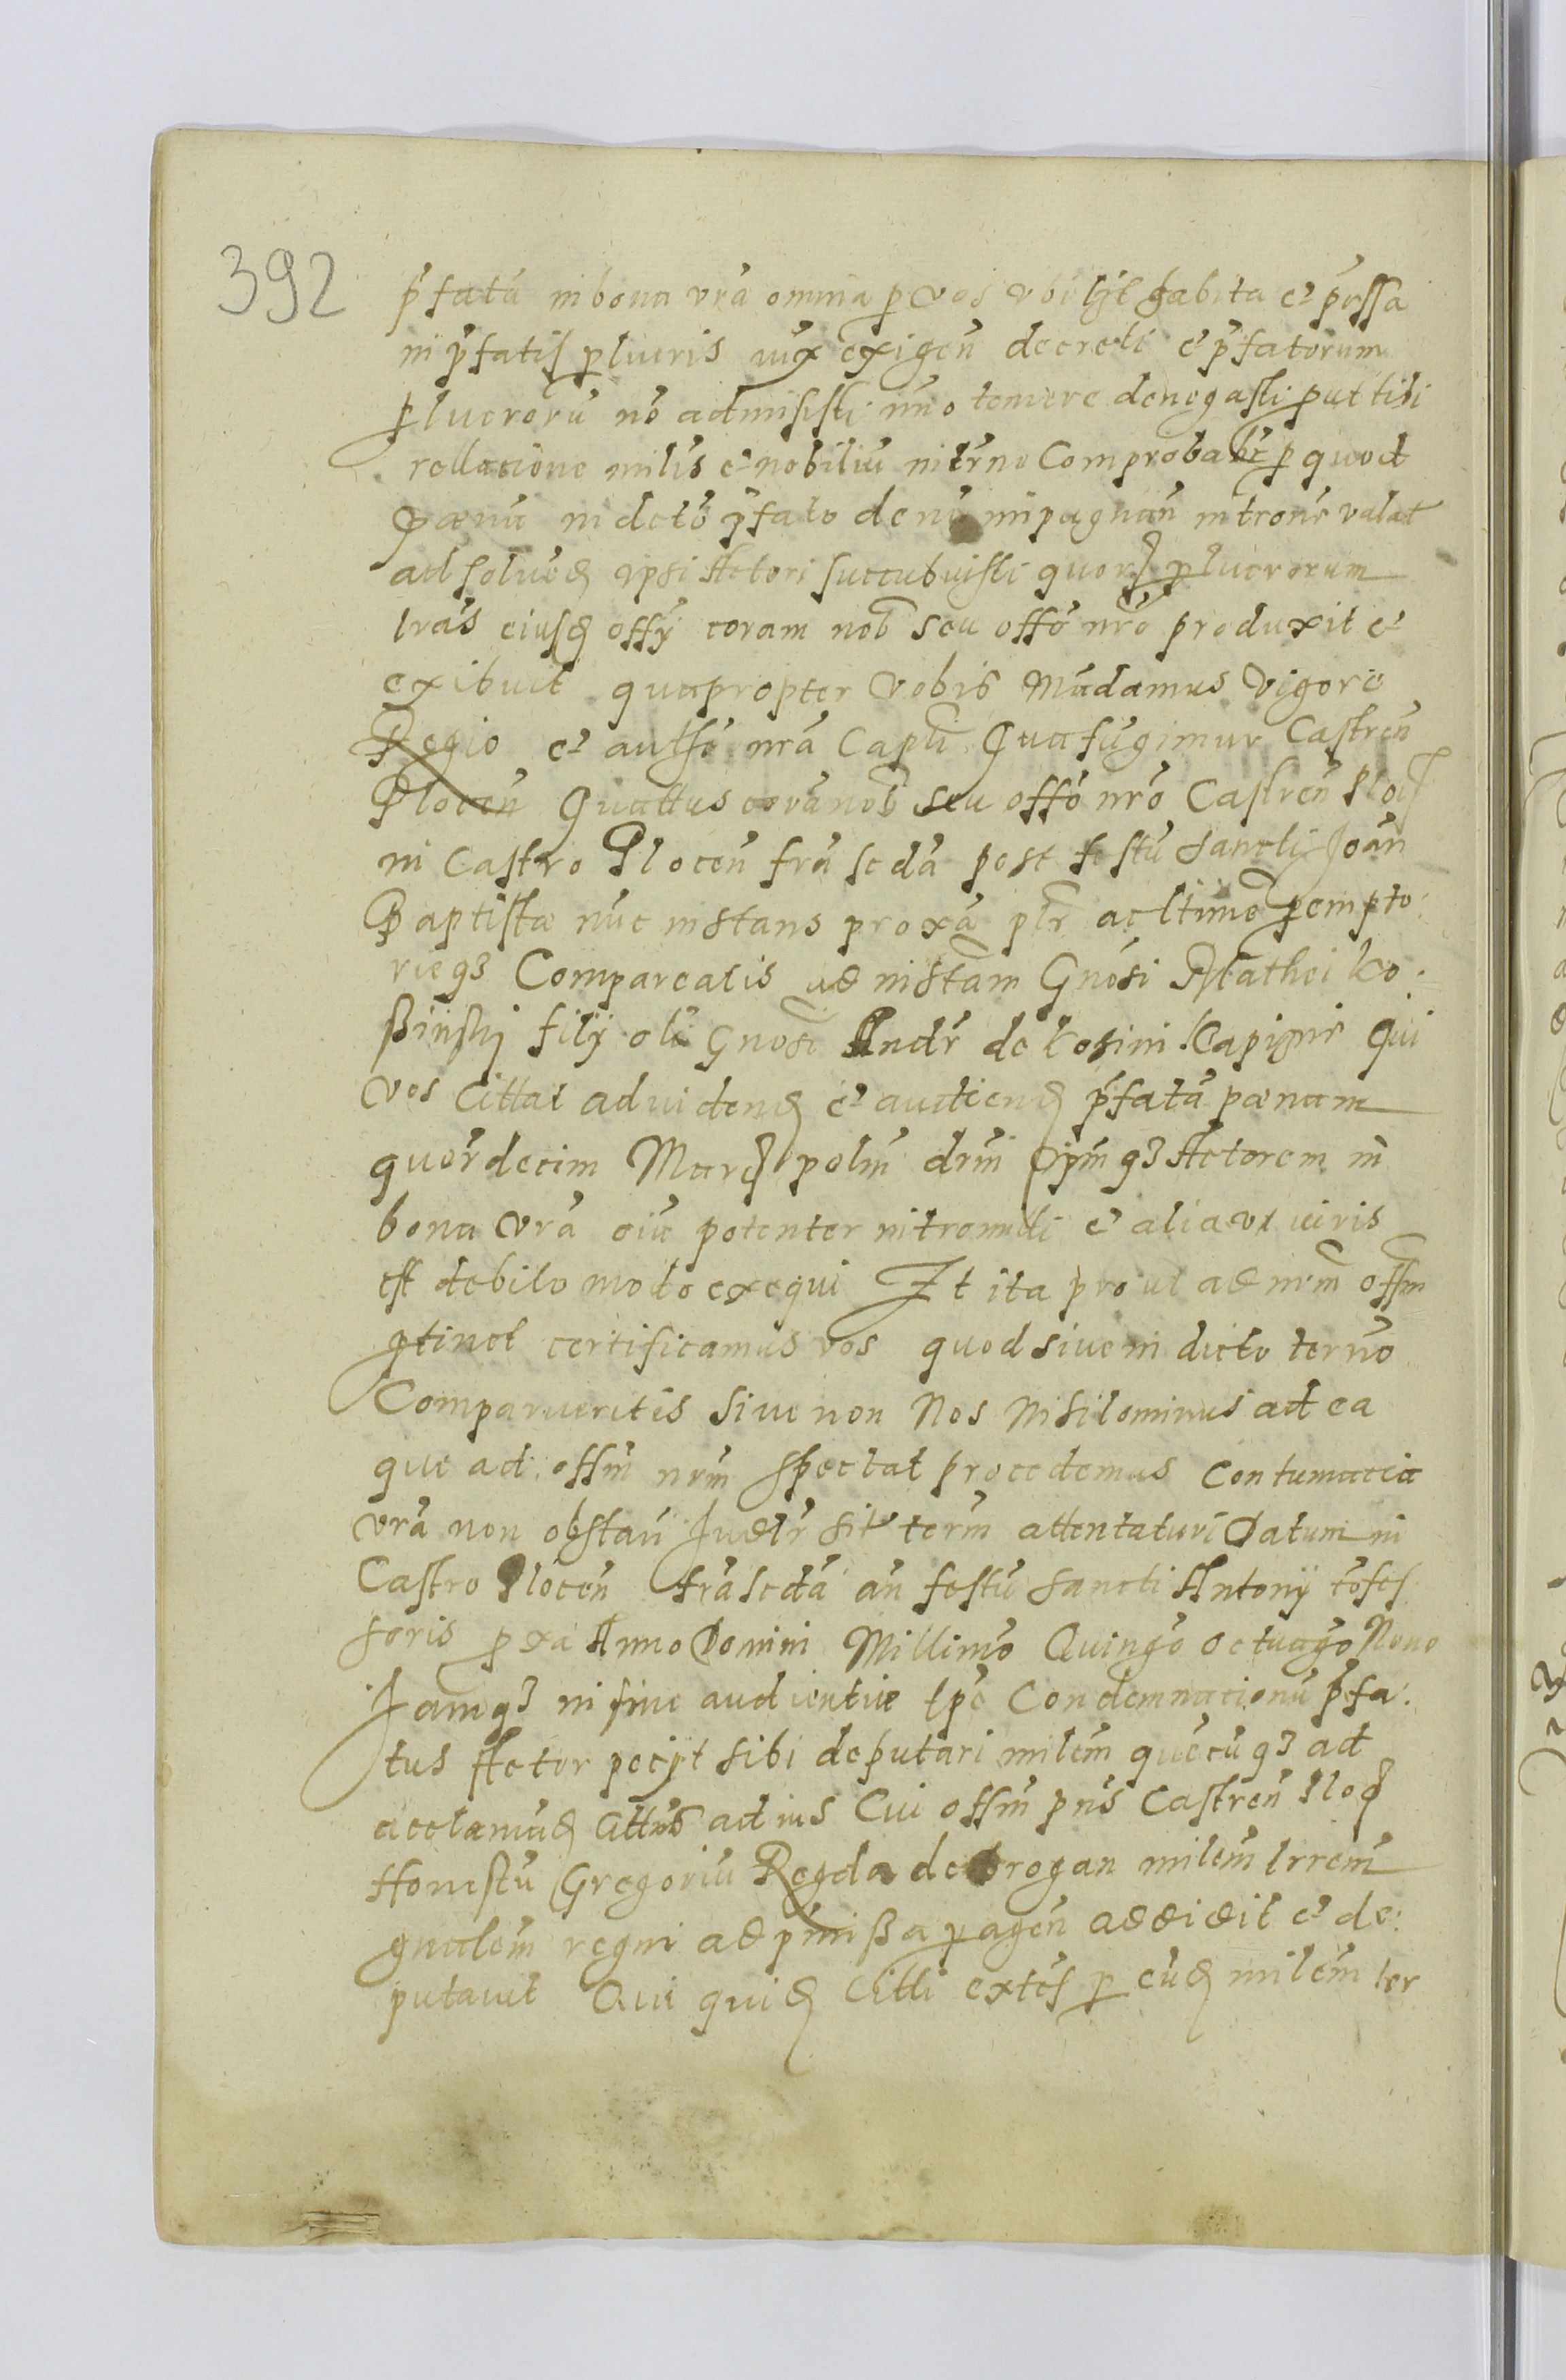 392
p̄fatū in bona vrā omnia p vos vbilꝫt habita et p̄ssa
in p̄fatis plucris iux exigen̄ decreti et p̄fatorum
plucrorū nō admisisti imo temere denegasti put tibi
rellatione milīs et nobiliū in trn̄o Comprobabr̄ p quod
pænā in dctō p̄fato de nō impugnan̄ intron̄e valat
ad solued ipsi Actori succubuisti quorꝫ plucrorum
lrās eiusd offy coram nob seu offō nrō produxit et
exibuit quapropter Vobis Mādamus Vigore
Regio et authē nrā Capli Qua fūgimur Castren̄
Plocen̄ Quattus corā nob seu offō nrō Castren̄ Ploc
in Castro Plocen̄ frā scdā post festū Sancti Joān
Baptistæ nūc instans proxā plr̄ ac ltime pempto:
rieqꝫ Compareatis ad instam Gnōsi Mathei Ko:
ßinskj filÿ oli Gnosi Andr̄ de Kosini Kapignē Qui
Vos Cittat ad videnꝫ et audienꝫ p̄fatā pænam
quordecim Marꝫ polīn drīn ipm̄qꝫ Actorem in
bona vrā oīa potenter intromitti et alia vt iuris
est debito modo exequi Et ita prout ad nrm̄ offm
ptinet certificamus vos quod siue in dicto termō
Comparueritis siue non Nos Nihilominus ad ea
que ad offm̄ nrm̄ spectat procedemus Contumacia
vrā non obstan̄ Judlr sit term̄ attentaturi Datum in
Castro Plocen̄ frā scdā an̄ festū Sancti Antonÿ cōfes
soris p xa Anno Domini Millimo Quingo octuago Nono
Jamqꝫ in fine audientiæ tpē Condemnacionū p̄fa:
tus Actor pecÿt sibi deputari milem̄ quēcūqꝫ ad
acclamaꝫ Cittos ad ius Cui offm̄ pn̄s Castren̄ Ploc
Honestū Gregoriū Regda de Brogan milem̄ Irrem̄
gnalem̄ regni ad p̄mißa pagen̄ addidit et de:
putauit Qui quiꝫ Citti extēs p eūꝫ milem̄ ter